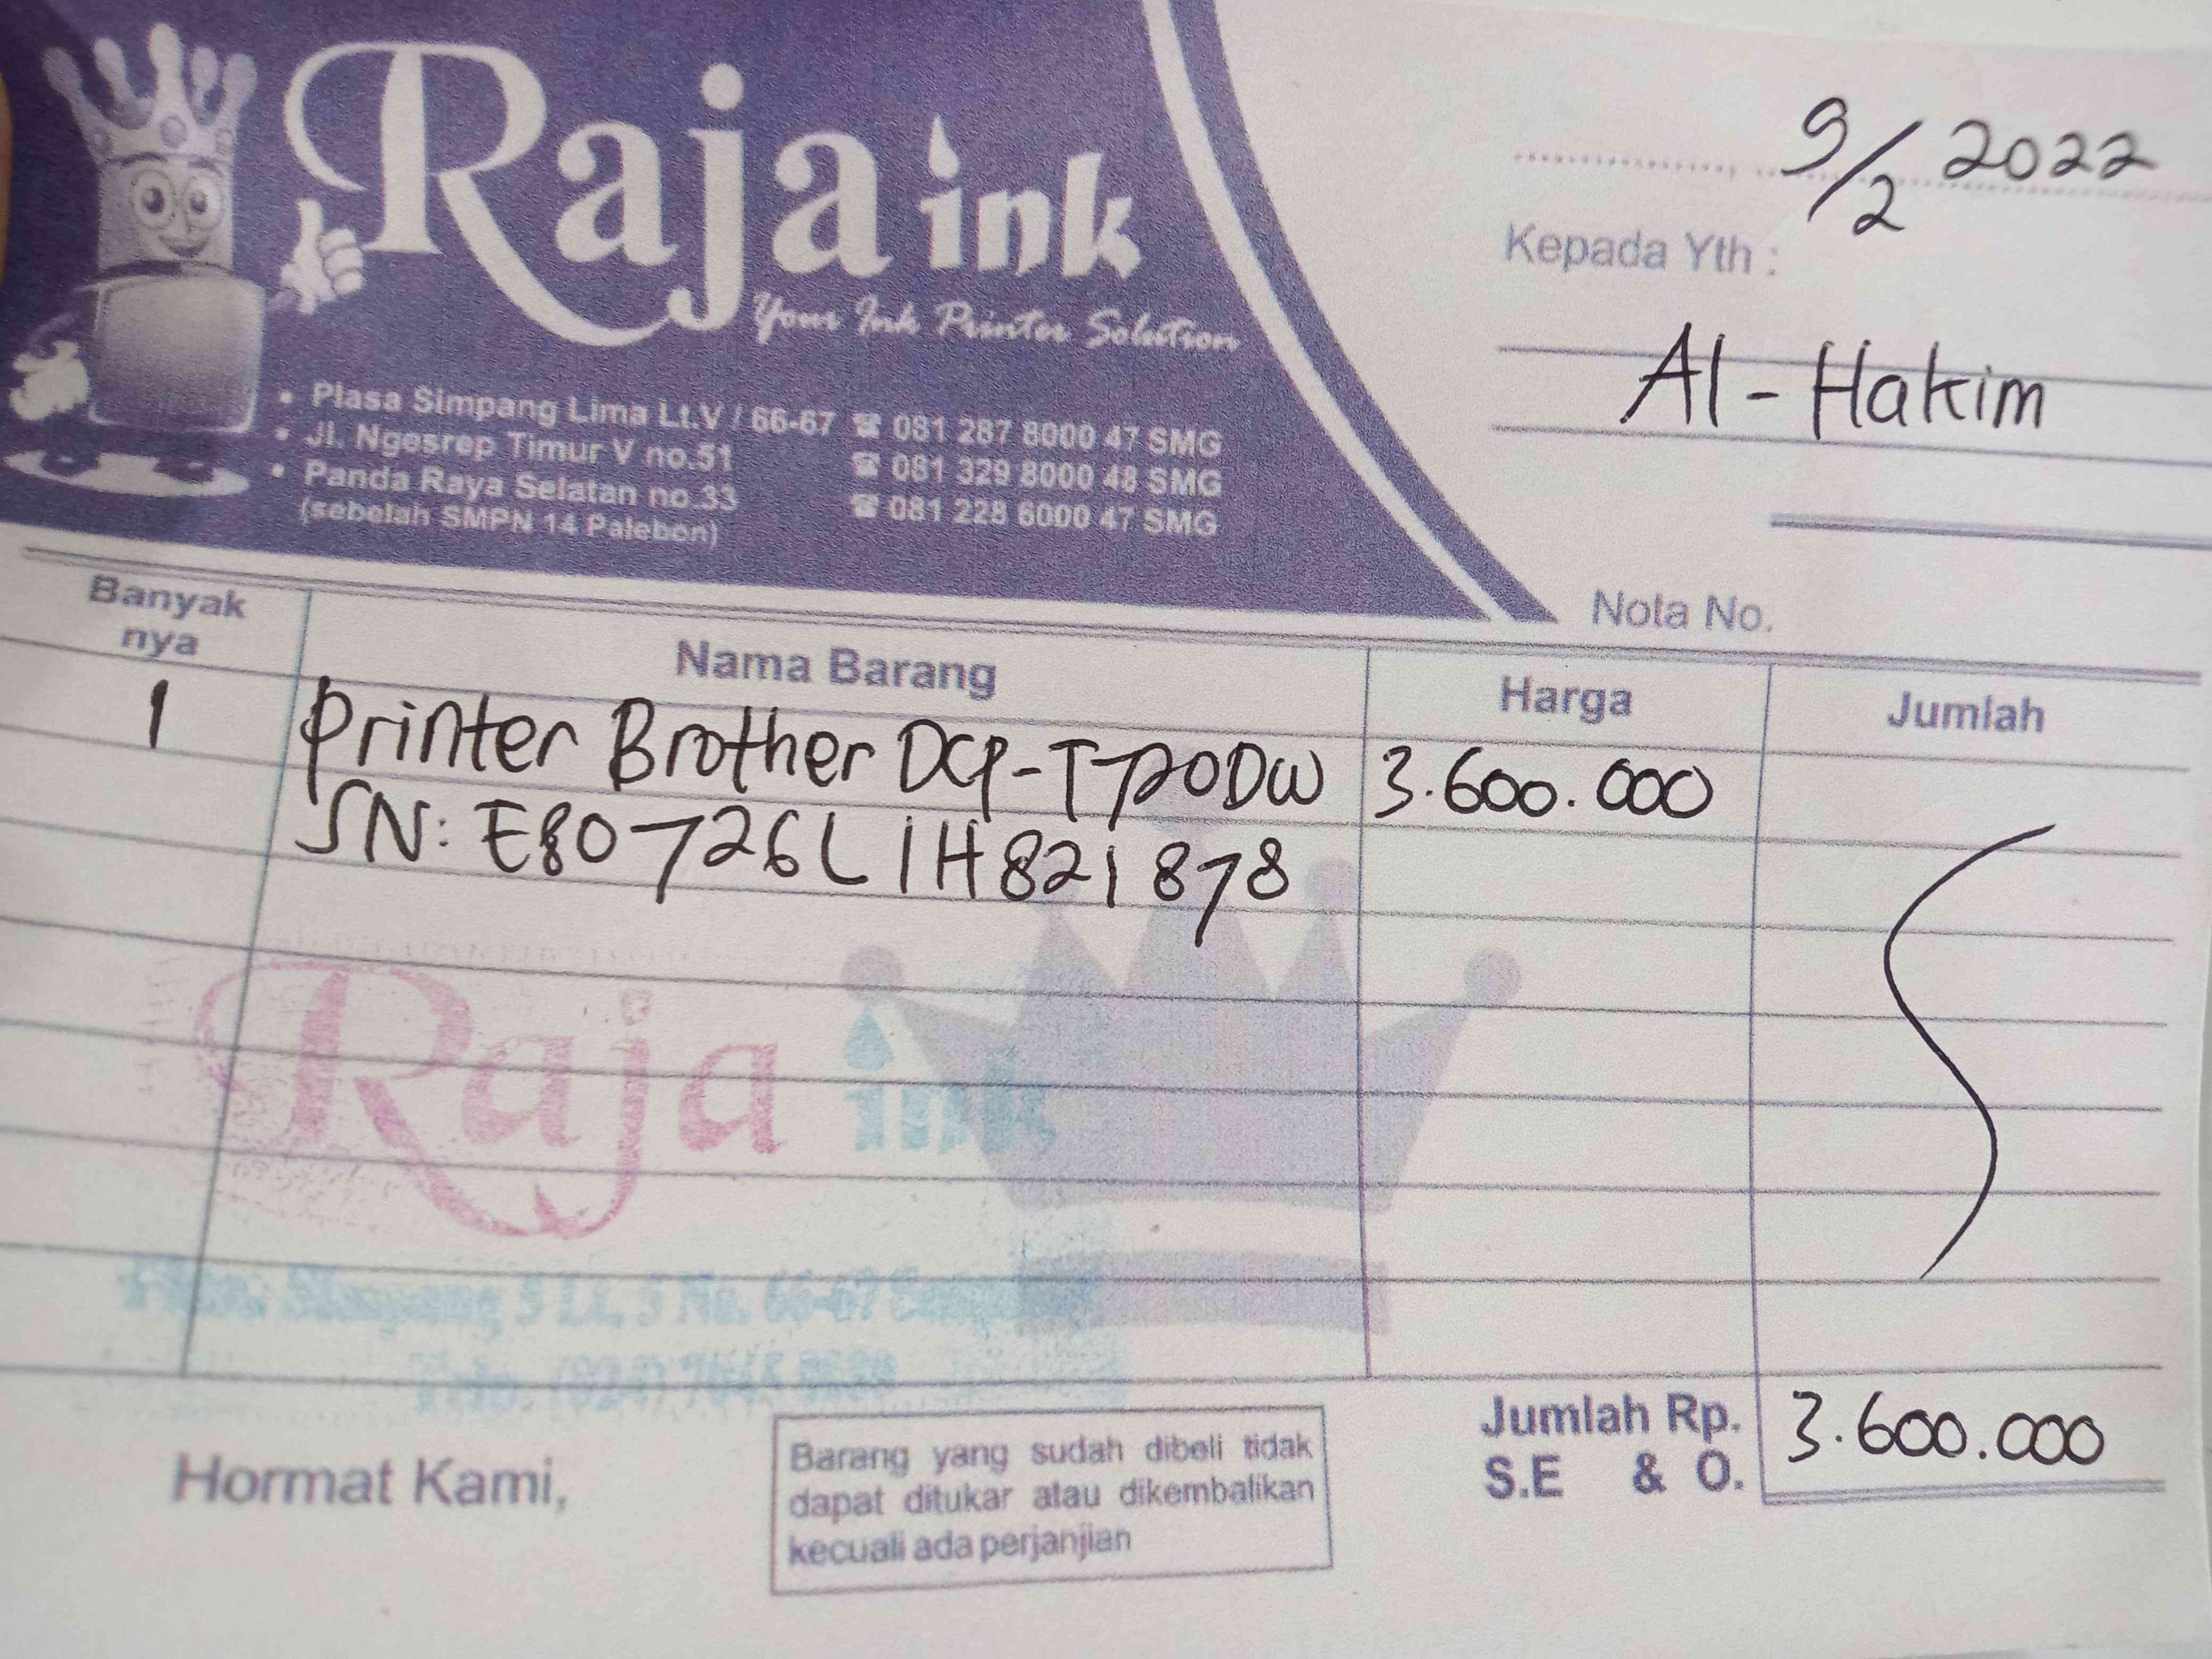 Raja ink
Your Ink Printer Solution
• Plasa Simpang Lima Lt.V / 66-67 ☎ 081 287 8000 47 SMG
• Jl. Ngesrep Timur V no.51 ☎ 081 329 8000 48 SMG
• Panda Raya Selatan no.33 ☎ 081 228 6000 47 SMG
(sebelah SMPN 14 Palebon)
9/2 2022
Kepada Yth :
Al-Hakim
Nota No.
Banyak nya Nama Barang Harga Jumlah
1 Printer Brother DCP-T720DW 3.600.000
SN: E80726L1H821878
Raja ink
Simpang 5 Lt. 5 No. 66-67
Jumlah Rp. 3.600.000
S.E & O.
Hormat Kami,
Barang yang sudah dibeli tidak
dapat ditukar atau dikembalikan
kecuali ada perjanjian